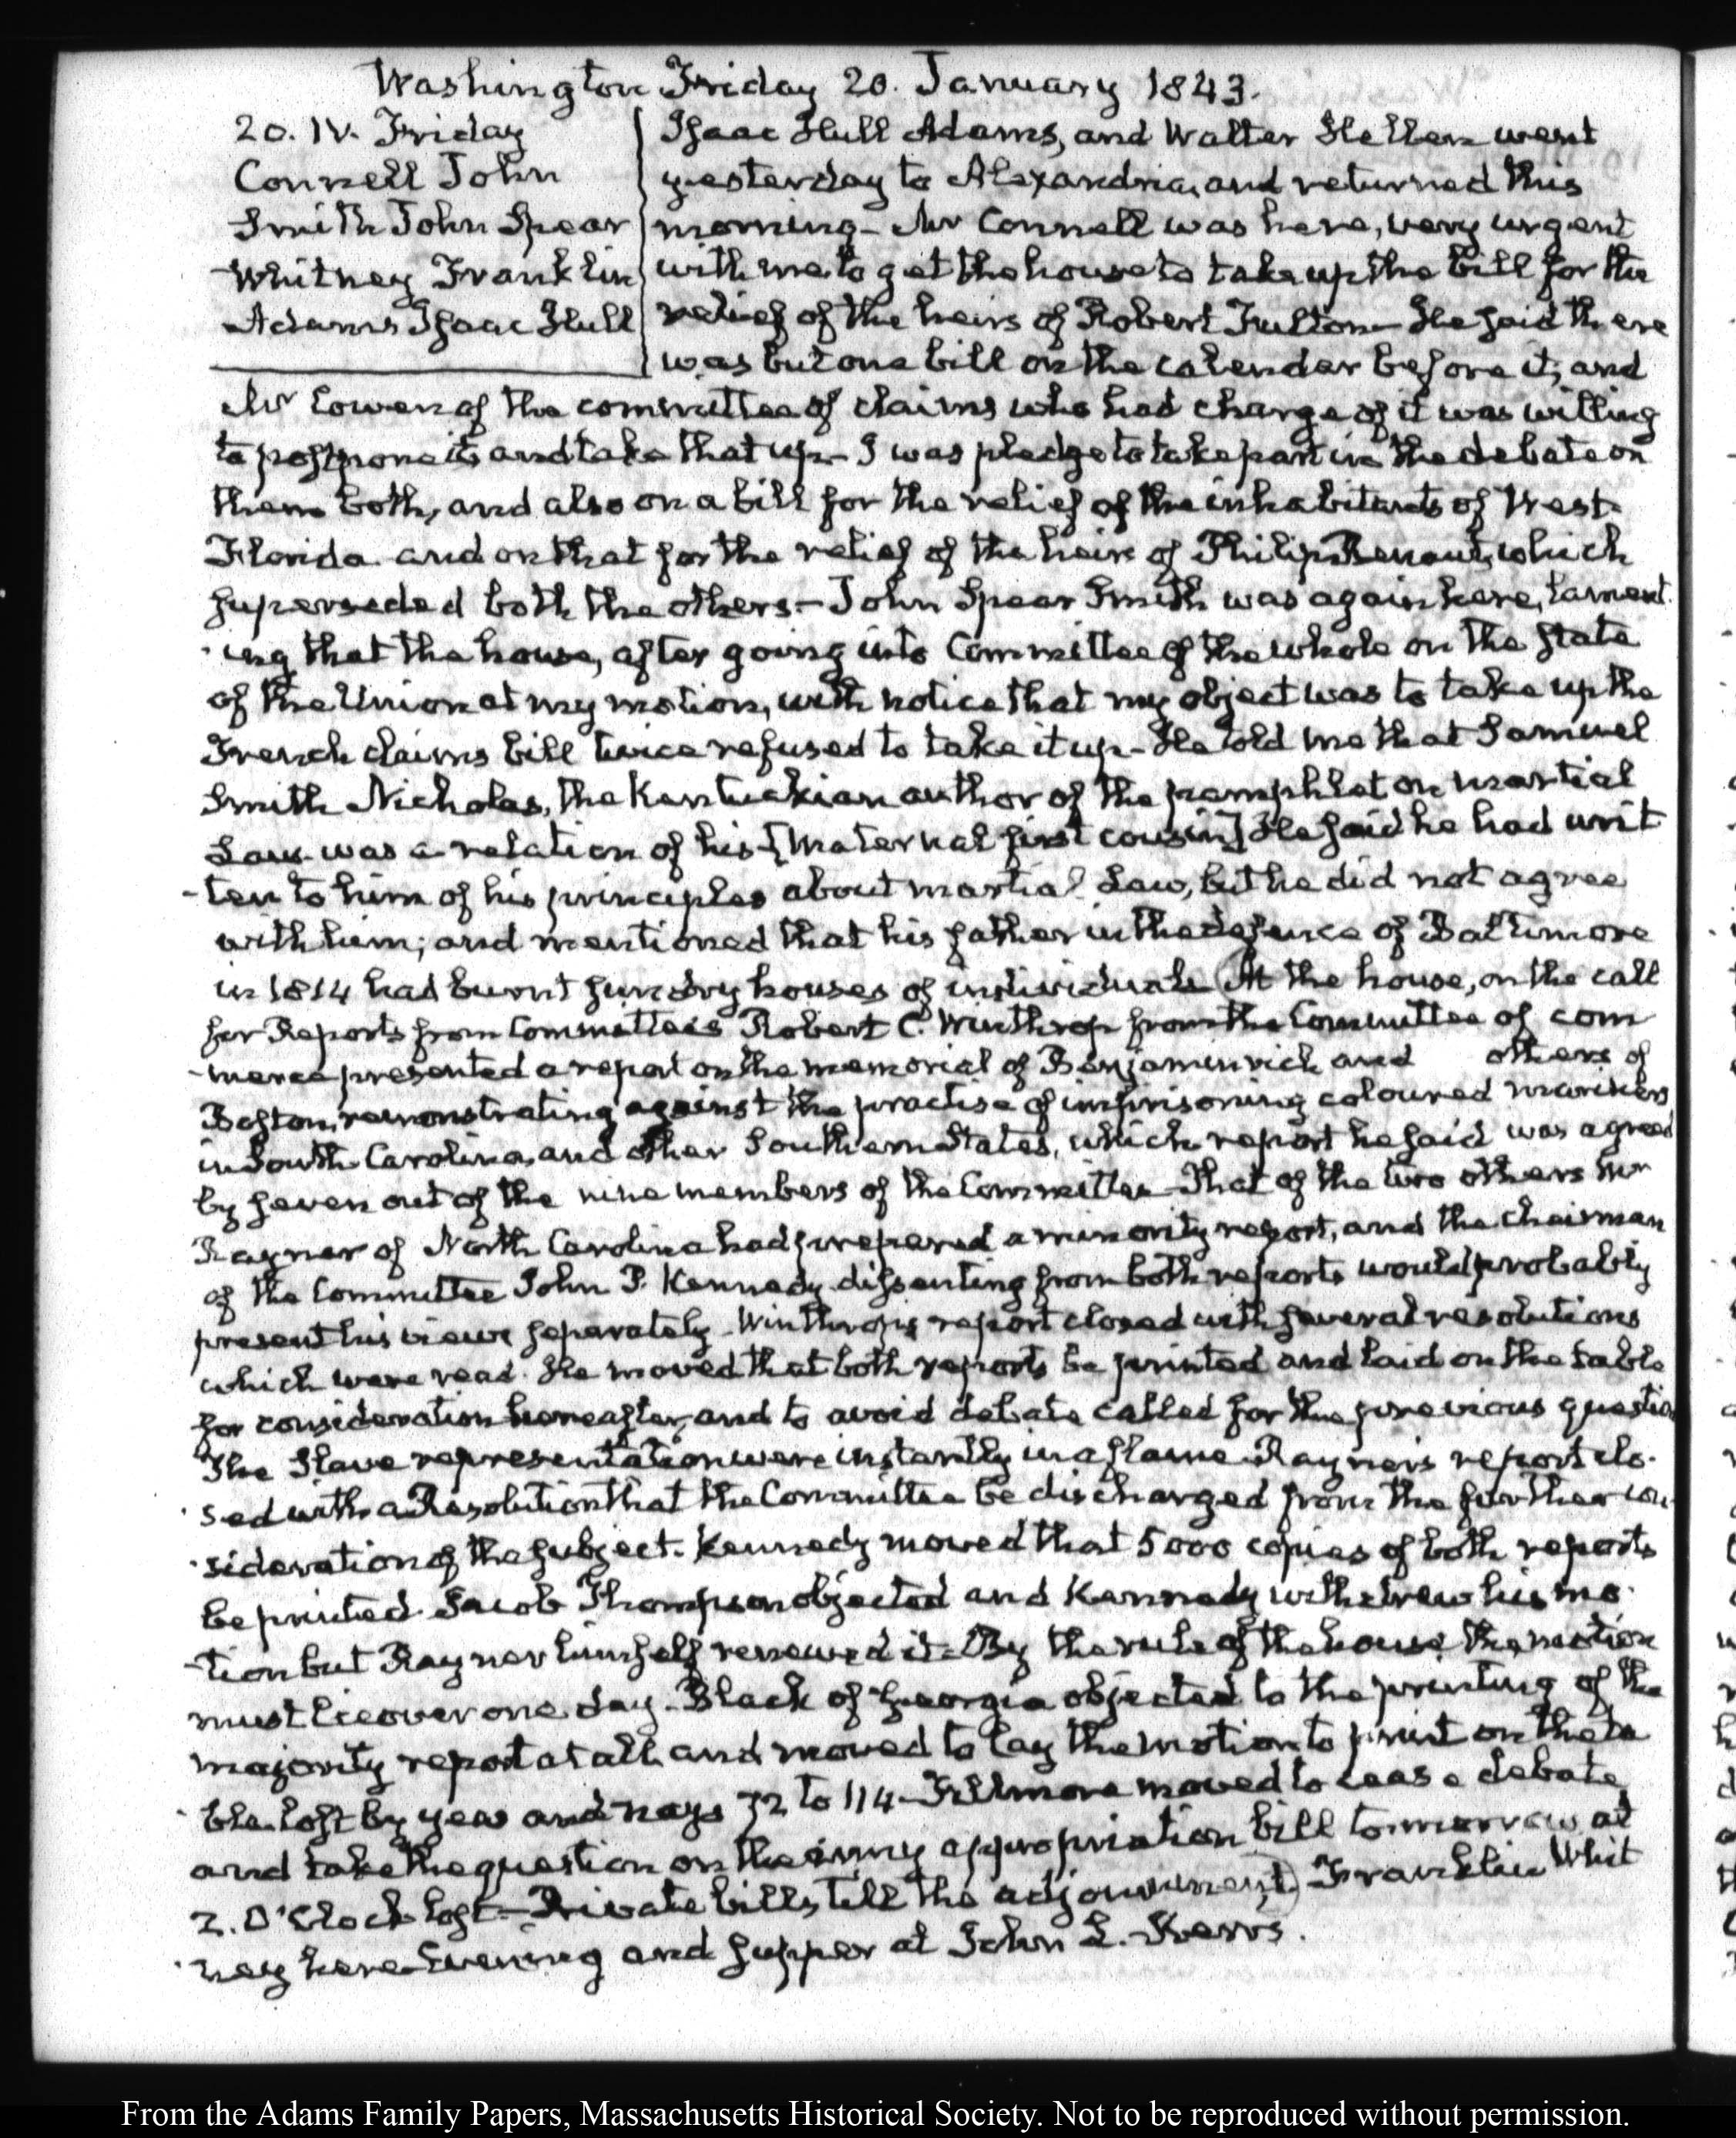 Washington Friday 20. January 1843.
20. IV. Friday
Connell John
Smith John Spear
Whitney Franklin
Adams Isaac Hull
Isaac Hull Adams, and Walter Hellen went
yesterday to Alexandria, and returned this
morning- Mr Connell was here, very urgent
with me to get the house to take up the bill for the
relief of the heirs of Robert Fulton- He said there
was but one bill on the calendar before it, and
Mr Cowen of the committee of claims who had charge of it was willing
to postpone it, and take that up- I was pledge to take part in the debate on
them both, and also on a bill for the relief of the inhabitants of West-
Florida and on that for the relief of the heirs of Philip Renaut, which
superseded both the others- John Spear Smith was again here, lament
ing that the house, after going into Committee of the whole on the state
of the Union at my motion, with notice that my object was to take up the
French claims bill twice refused to take it up- He told me that Samuel
Smith Nicholas, the Kentuckian author of the pamphlet on martial
Law was a relation of his [maternal first cousin] He said he had writ
-ten to him of his principles about martial Law, but he did not agree
with him; and mentioned that his father in the defence of Baltimore
in 1814 had burnt sundry houses of individuals (At the house, on the call
for Reports from Committees Robert C. Winthrop from the Committee of com
-merce presented a report on the memorial of Benjamin rich and others of
Boston, remonstrating against the practise of imprisoning coloured mariners
in South Carolina, and other Southern States, which report he said was agreed
by seven out of the nine members of the Committee- That of the two others Mr
Rayner of North Carolina had prepared a minority report, and the chairman
of the Committee John P. Kennedy dissenting from both reports would probably
present his views separately- Winthrop's report closed with several resolutions
which were read. He moved that both reports be printed and laid on the table
for consideration hereafter, and to avoid debate called for the previous question
The Slave representation were instantly in a flame- Rayner's report clo-
sed with a Resolution that the Committee be discharged from the further con-
sideration of the subject. Kennedy moved that 5000 copies of both reports
be printed. Jacob Thompson objected and Kennedy withdrew his mo-
-tion but Rayner himself renewed it- By the rule of the house the motion
must lie over one day- Black of Georgia objected to the printing of the
majority report at all and moved to lay the motion to print on the ta
ble. lost by yeas and nays 72 to 114- Fillmore moved to cease debate
and take the question on the army appropriation bill tomorrow at
2. O'Clock lost- Private bills, till the adjournment) Franklin Whit
ney here- Evening and supper at John L. Kerr's.
From the Adams Family Papers, Massachusetts Historical Society. Not to be reproduced without permission.